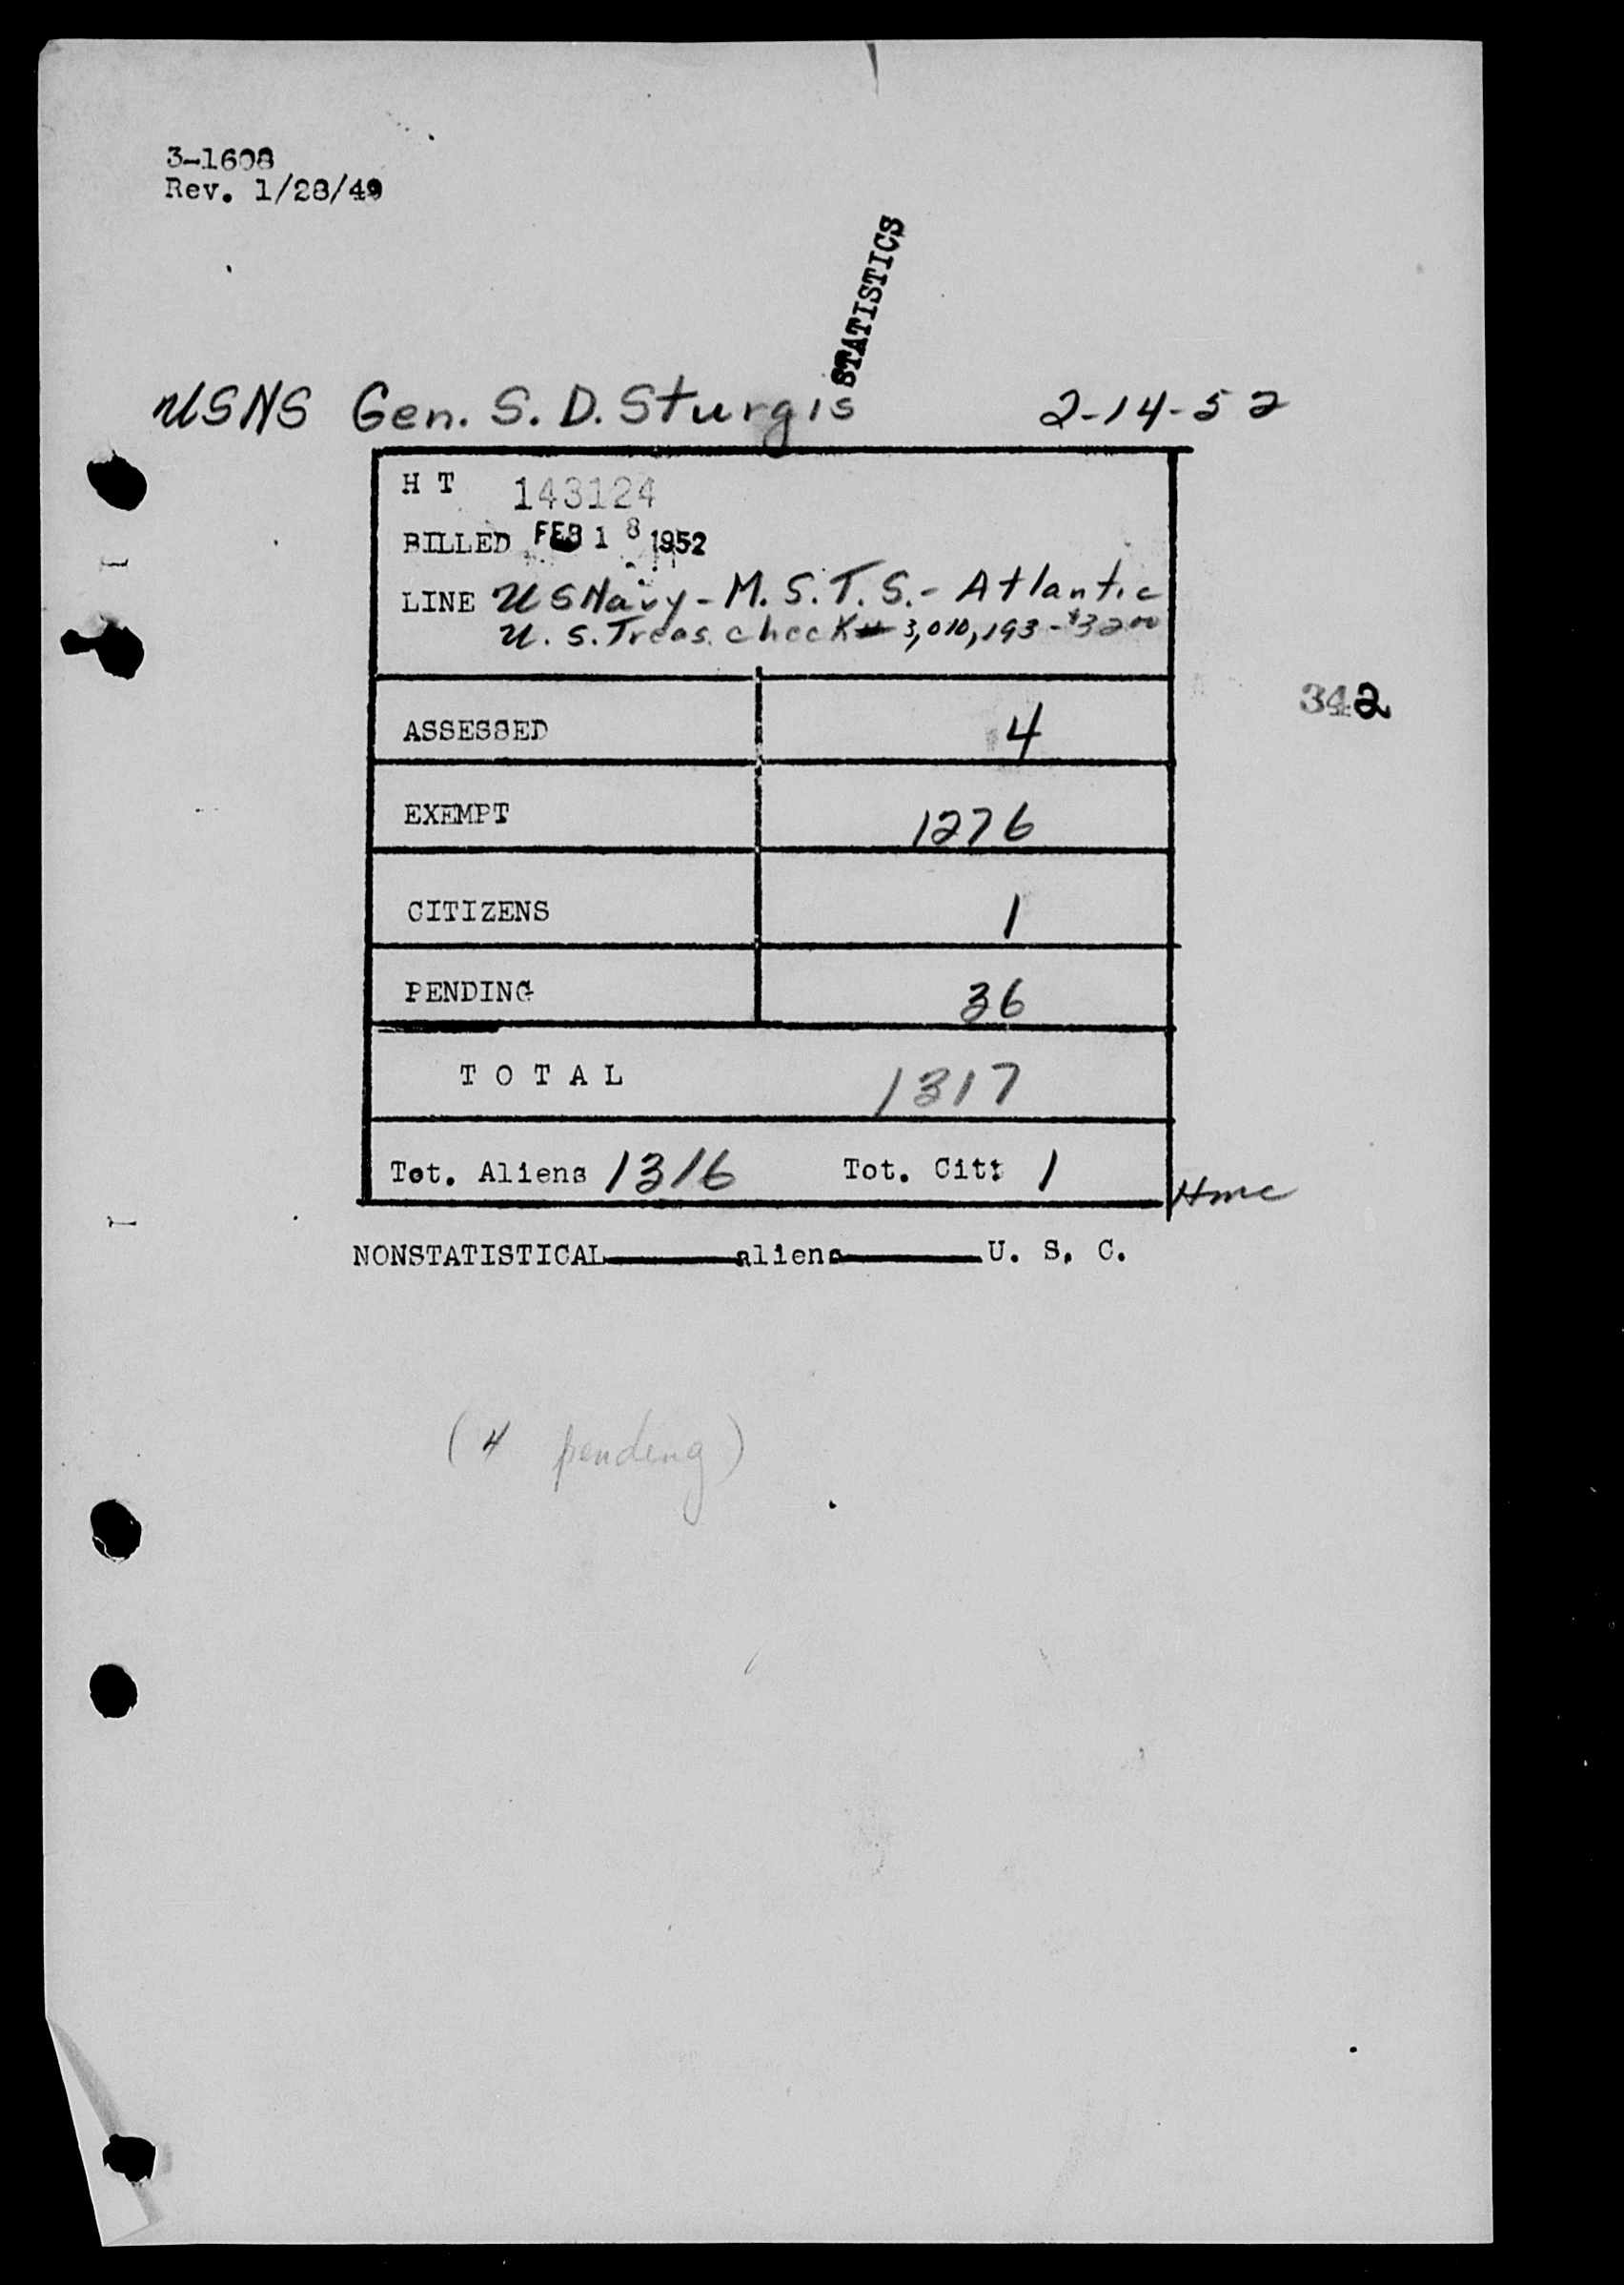 3-1608
Rev. 1/28/49
STATISTICS
USNS Gen. S. D. Sturgis 2-14-52
H T 143124
BILLED FEB 18 1952
LINE US Navy - M. S. T. S. - Atlantic
U. S. Treas. check # 3,010,193 - $32 00
342
ASSESSED 4
EXEMPT 1276
CITIZENS 1
PENDING 36
T O T A L 1317
Tot. Aliens 1316 Tot. Cit: 1
Hmc
NONSTATISTICAL aliens U. S. C.
(4 pending)